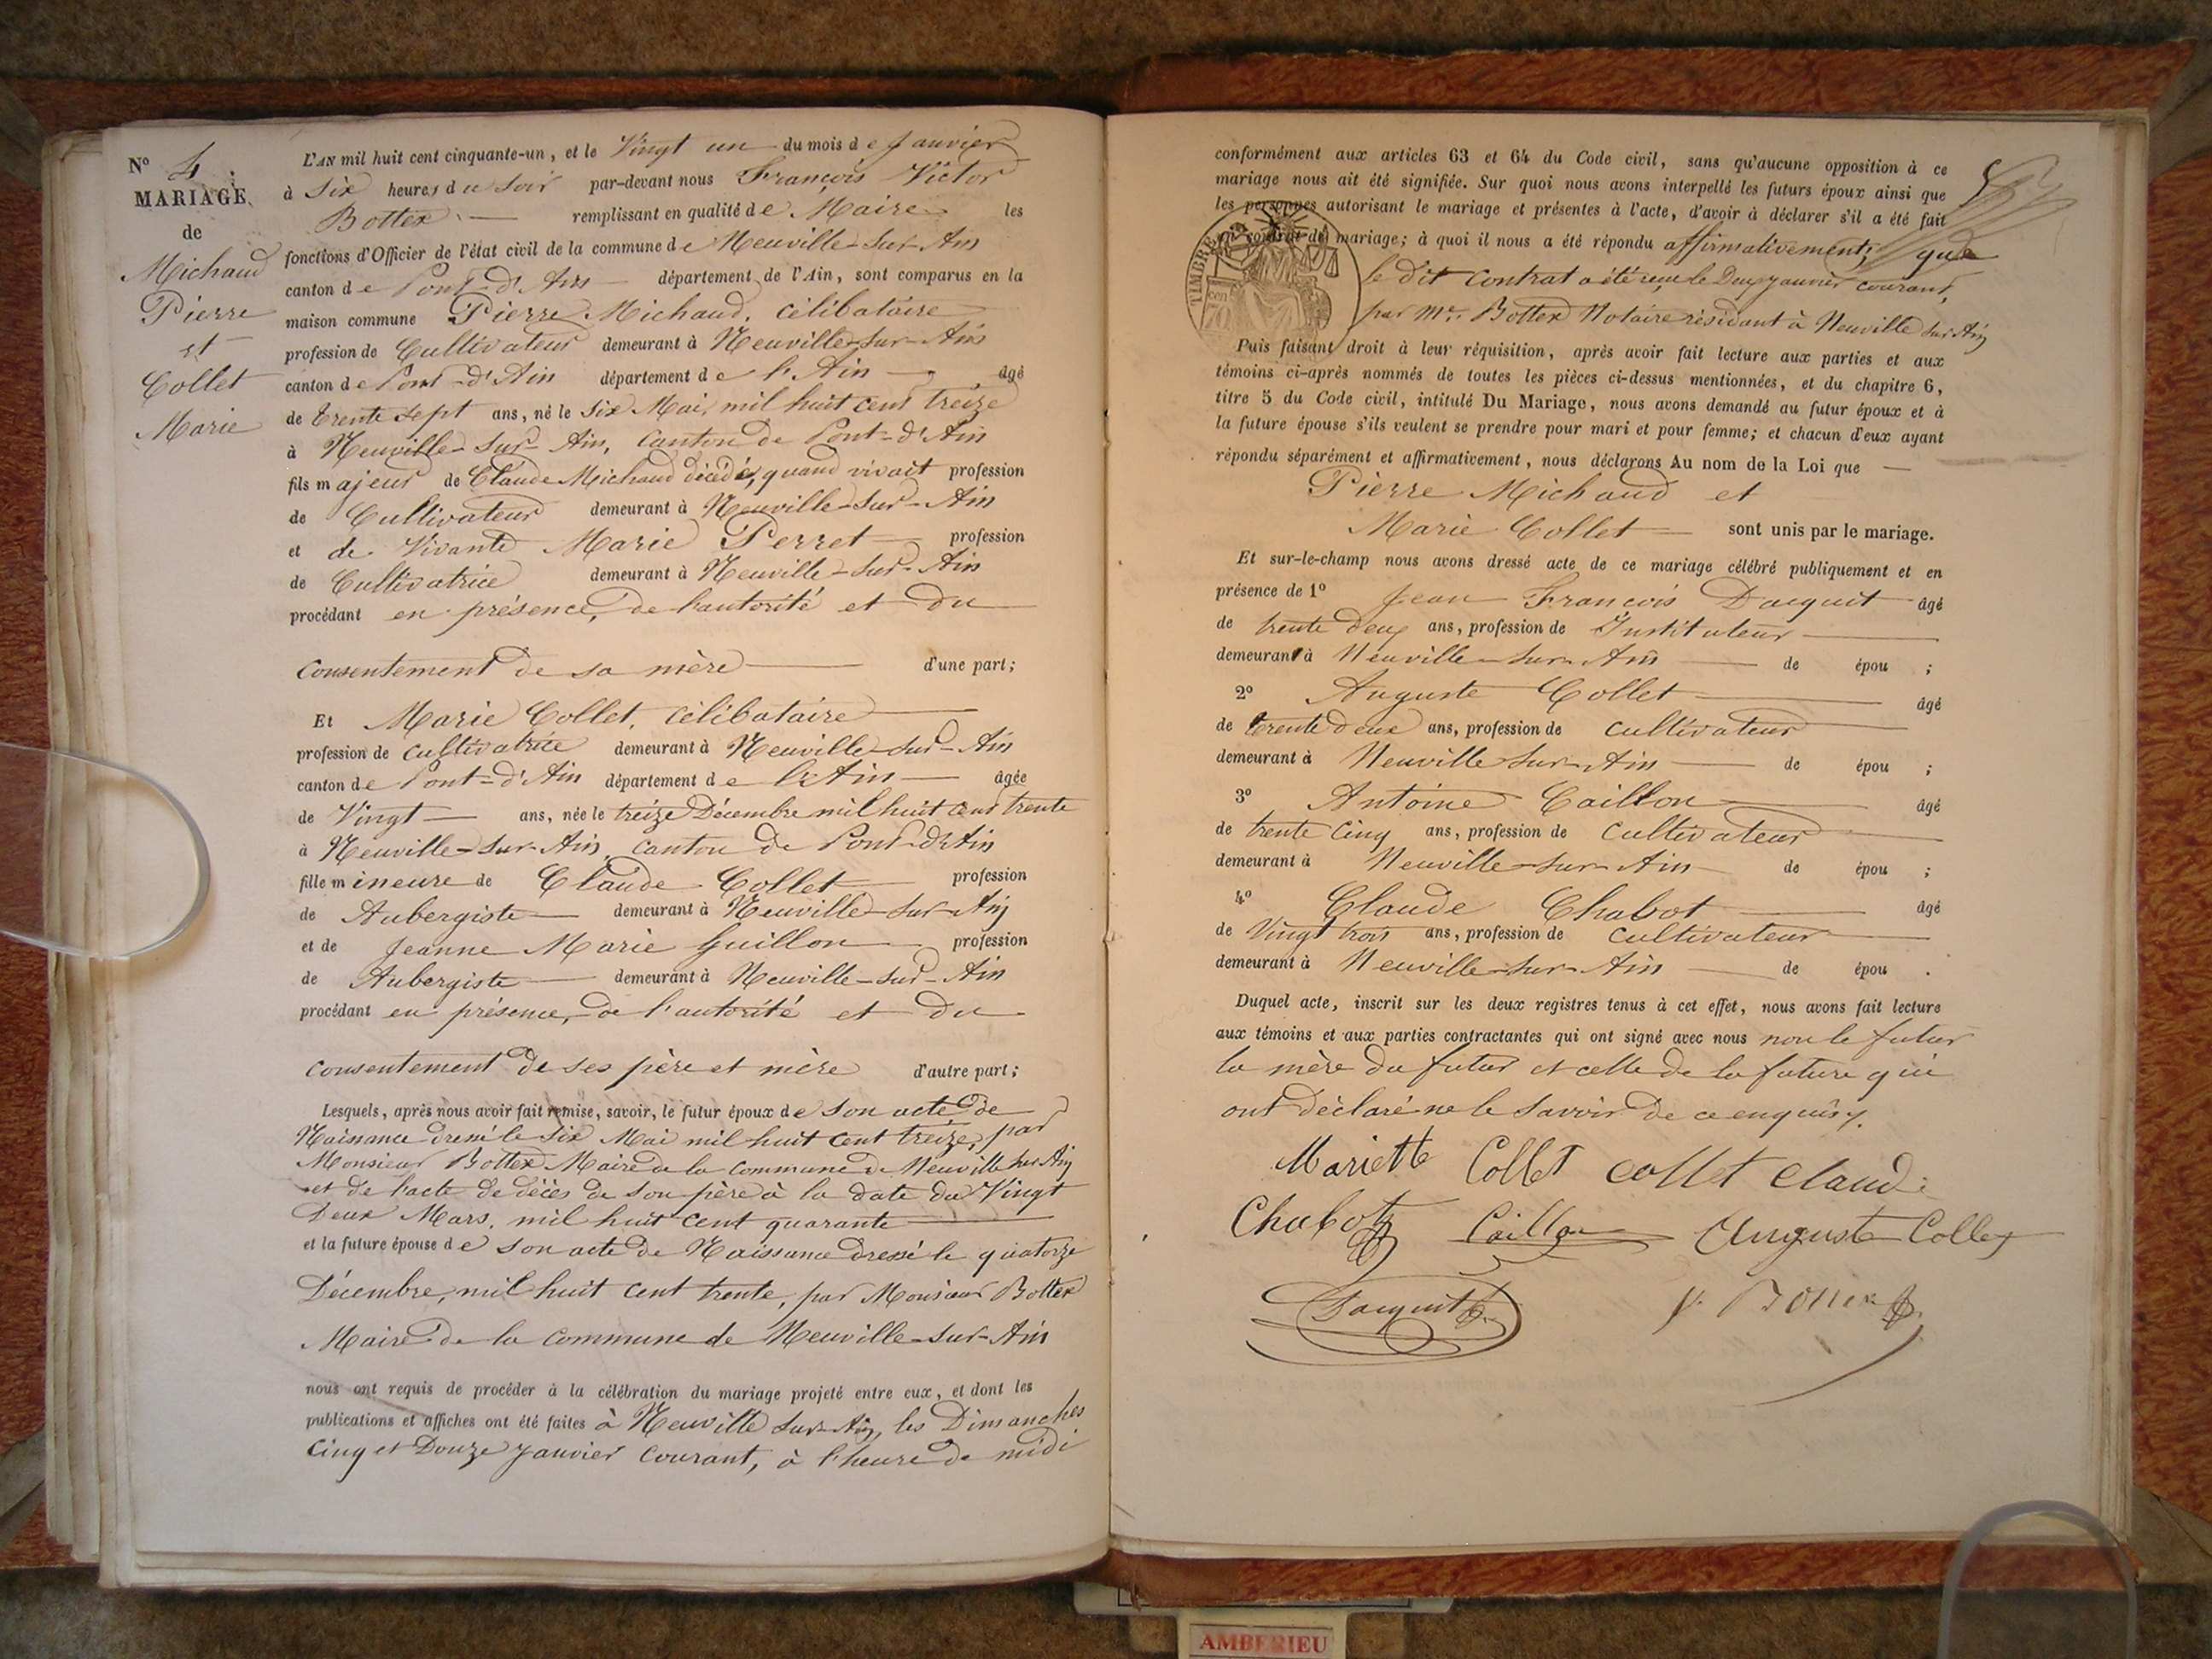 N° 4.
MARIAGE
de
Michaud
Pierre
et
Collet
Marie
L'AN mil huit cent cinquante-un, et le Vingt un du mois de Janvier
à Six heures du Soir par-devant nous François Victor
Bottex remplissant en qualité de Maire les
fonctions d'Officier de l'état civil de la commune de Neuville-Sur-Ain
canton de Pont-d'Ain département de l'Ain, sont comparus en la
maison commune Pierre Michaud, célibataire
profession de Cultivateur demeurant à Neuville-Sur-Ain
canton de Pont-d'Ain département de l'Ain âgé
de trente sept ans, né le Six Mai, mil huit cent treize
à Neuville-Sur-Ain, Canton de Pont-d'Ain
fils majeur de Claude Michaud décédé, quand vivait profession
de Cultivateur demeurant à Neuville-Sur-Ain
et de Vivante Marie Perret profession
de Cultivatrice demeurant à Neuville-Sur-Ain
procédant en présence, de l'autorité et du
Consentement de sa mère d'une part;
Et Marie Collet, célibataire
profession de cultivatrice demeurant à Neuville-Sur-Ain
canton de Pont-d'Ain département de l'Ain âgée
de Vingt ans, née le treize Décembre mil huit cent trente
à Neuville-Sur-Ain, Canton de Pont-d'Ain
fille mineure de Claude Collet profession
de Aubergiste demeurant à Neuville-Sur-Ain
et de Jeanne Marie Guillon profession
de Aubergiste demeurant à Neuville-Sur-Ain
procédant en présence, de l'autorité et du
consentement de ses père et mère d'autre part;
Lesquels, après nous avoir fait remise, savoir, le futur époux de son acte de
Naissance dressé le Six Mai mil huit cent treize, par
Monsieur Bottex Maire de la Commune de Neuville sur Ain
et de l'acte de décès de son père à la date du Vingt
Deux Mars, mil huit cent quarante
et la future épouse de son acte de Naissance dressé le quatorze
Décembre, mil huit cent trente, par Monsieur Bottex
Maire de la Commune de Neuville-sur-Ain
nous ont requis de procéder à la célébration du mariage projeté entre eux, et dont les
publications et affiches ont été faites à Neuville Sur-Ain, les Dimanches
Cinq et Douze Janvier Courant, à l'heure de midi
conformément aux articles 63 et 64 du Code civil, sans qu'aucune opposition à ce
mariage nous ait été signifiée. Sur quoi nous avons interpellé les futurs époux ainsi que
les personnes autorisant le mariage et présentes à l'acte, d'avoir à déclarer s'il a été fait
un contrat de mariage; à quoi il nous a été répondu affirmativement; que
le dit contrat a été reçu le Deux janvier courant,
par Me. Bottex Notaire résidant à Neuville sur Ain
TIMBRE
cen
70
Puis faisant droit à leur réquisition, après avoir fait lecture aux parties et aux
témoins ci-après nommés de toutes les pièces ci-dessus mentionnées, et du chapitre 6,
titre 5 du Code civil, intitulé Du Mariage, nous avons demandé au futur époux et à
la future épouse s'ils veulent se prendre pour mari et pour femme; et chacun d'eux ayant
répondu séparément et affirmativement, nous déclarons Au nom de la Loi que
Pierre Michaud et
Marie Collet sont unis par le mariage.
Et sur-le-champ nous avons dressé acte de ce mariage célébré publiquement et en
présence de 1° Jean François Dacquit âgé
de trente deux ans, profession de Instituteur
demeurant à Neuville-sur-Ain de épou ;
2° Auguste Collet âgé
de trente deux ans, profession de Cultivateur
demeurant à Neuville Sur-Ain de épou ;
3° Antoine Caillon âgé
de trente cinq ans, profession de Cultivateur
demeurant à Neuville-Sur-Ain de épou ;
4° Claude Chabot âgé
de Vingt trois ans, profession de Cultivateur
demeurant à Neuville-Sur-Ain de épou .
Duquel acte, inscrit sur les deux registres tenus à cet effet, nous avons fait lecture
aux témoins et aux parties contractantes qui ont signé avec nous non le futur
la mère du futur et celle de la future qui
ont déclaré ne le savoir de ce enquis.
Mariette Collet collet claude
Chabot Caillon Auguste Collet
Dacquit V. Bottex
AMBERIEU